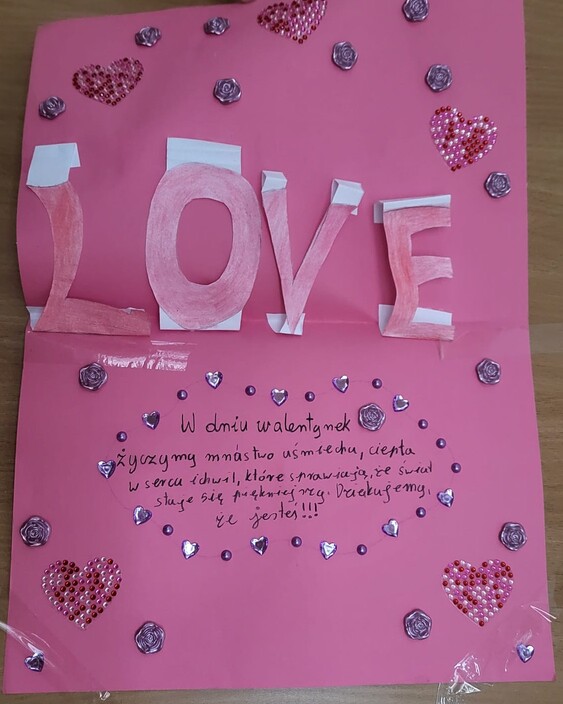 LOVE
W dniu walentynek
życzymy mnóstwo uśmiechu, ciepła
w sercu i chwil, które sprawiają, że świat
staje się piękniejszy. Dziękujemy,
że jesteś!!!